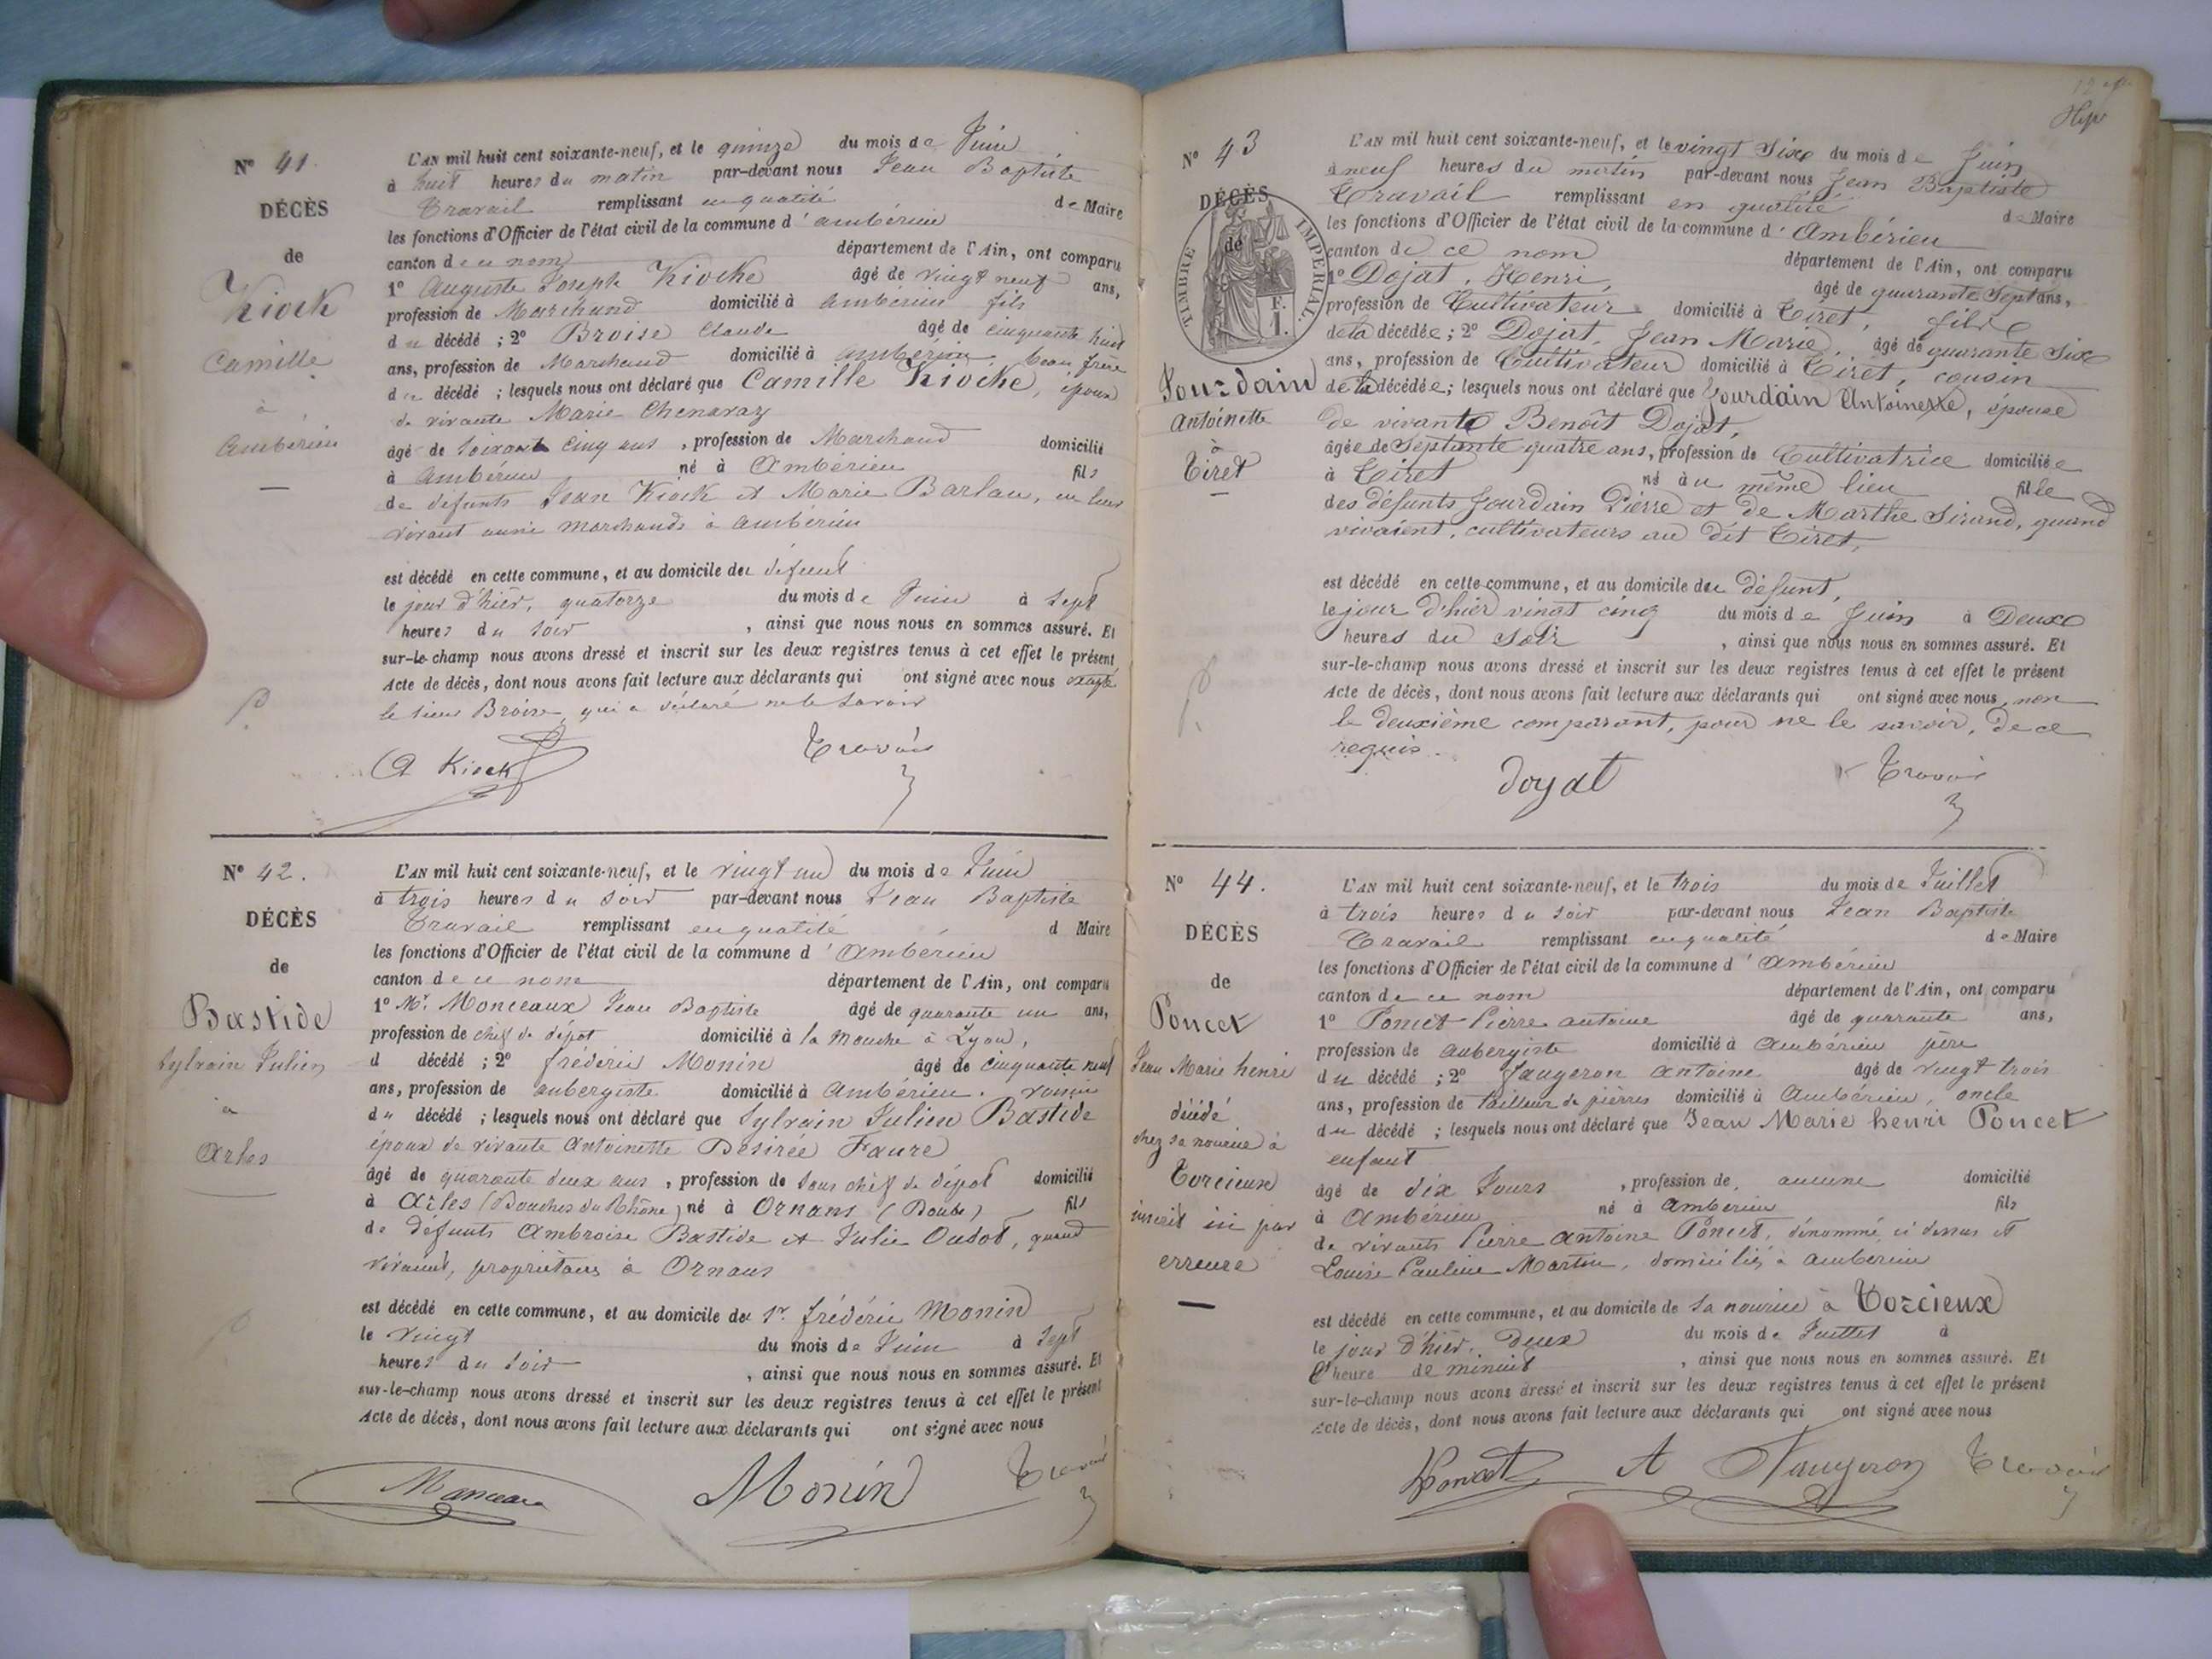 N° 41.
DÉCÈS
de
Kiock
Camille
à
Ambérieu
L'AN mil huit cent soixante-neuf, et le quinze du mois de Juin
à huit heures du matin par-devant nous Jean Baptiste
Travail remplissant en qualité de Maire
les fonctions d'Officier de l'état civil de la commune d'ambérieu
canton de ce nom département de l'Ain, ont comparu
1° Auguste Joseph Kiocke âgé de vingt neuf ans,
profession de Marchand domicilié à ambérieu fils
du décédé ; 2° Broise Claude âgé de cinquante huit
ans, profession de Marchand domicilié à ambérieu, beau frère
du décédé ; lesquels nous ont déclaré que Camille Kiocke, époux
de vivante Marie Chenavaz
âgé de soixante cinq ans , profession de Marchand domicilié
à ambérieu né à Ambérieu fils
de défunts Jean Kiock et Marie Barlau, en leur
vivant aussi marchands à ambérieu
est décédé en cette commune, et au domicile du défunt
le jour d'hier, quatorze du mois de Juin à sept
heures du soir , ainsi que nous nous en sommes assuré. Et
sur-le-champ nous avons dressé et inscrit sur les deux registres tenus à cet effet le présent
Acte de décès, dont nous avons fait lecture aux déclarants qui ont signé avec nous excepté
le sieur Broise, qui a déclaré ne le savoir
A Kiock Travail
N° 42.
DÉCÈS
de
Bastide
Sylvain Julien
à
Arles
L'AN mil huit cent soixante-neuf, et le vingt un du mois de Juin
à trois heures du soir par-devant nous Jean Baptiste
Travail remplissant en qualité d Maire
les fonctions d'Officier de l'état civil de la commune d'Ambérieu
canton de ce nom département de l'Ain, ont comparu
1° Mr. Monceaux Jean Baptiste âgé de quarante un ans,
profession de chef de dépot domicilié à la Mouche à Lyon,
d décédé ; 2° frédéric Monin âgé de cinquante neuf
ans, profession de aubergiste domicilié à Ambérieu. voisin
du décédé ; lesquels nous ont déclaré que Sylvain Julien Bastide
époux de vivante Antoinette Desirée Faure
âgé de quarante deux ans , profession de sous chef de dépot domicilié
à Arles (Bouches du Rhône) né à Ornans (Doubs) fils
de défunts Ambroise Bastide et Julie Oudot, quand
vivaient, propriétaires à Ornans
est décédé en cette commune, et au domicile de Sr. frédéric Monin
le vingt du mois de Juin à sept
heures du soir , ainsi que nous nous en sommes assuré. Et
sur-le-champ nous avons dressé et inscrit sur les deux registres tenus à cet effet le présent
Acte de décès, dont nous avons fait lecture aux déclarants qui ont signé avec nous
Monceaux Monin Travail
N° 43
DÉCÈS
de
TIMBRE IMPERIAL.
F.
1.
Jourdain
Antoinette
à
Tiret
L'AN mil huit cent soixante-neuf, et le vingt Six du mois de Juin
à neuf heures du matin par-devant nous Jean Baptiste
Travail remplissant en qualité de Maire
les fonctions d'Officier de l'état civil de la commune d'Ambérieu
canton de ce nom département de l'Ain, ont comparu
1° Dojat, Henri, âgé de quarante Sept ans,
profession de Cultivateur domicilié à Tiret, fils
de la décédée ; 2° Dojat, Jean Marie, âgé de quarante Six
ans, profession de Cultivateur domicilié à Tiret, cousin
de la décédée ; lesquels nous ont déclaré que Jourdain Antoinette, épouse
de vivant Benoît Dojat,
âgée de Septante quatre ans, profession de Cultivatrice domiciliée
à Tiret né au même lieu fille
des défunts Jourdain Pierre et de Marthe Sirand, quand
vivaient, cultivateurs au dit Tiret,
est décédé en cette commune, et au domicile du défunt,
le jour d'hier vingt cinq du mois de Juin à Deux
heures du Soir , ainsi que nous nous en sommes assuré. Et
sur-le-champ nous avons dressé et inscrit sur les deux registres tenus à cet effet le présent
Acte de décès, dont nous avons fait lecture aux déclarants qui ont signé avec nous, non
le deuxième comparant, pour ne le savoir, de ce
requis.
Doyat Travail
N° 44.
DÉCÈS
de
Poncet
Jean Marie henri
décédé
chez sa nourrice à
Torcieux
inscrit ici par
erreure
L'AN mil huit cent soixante-neuf, et le trois du mois de Juillet
à trois heures du soir par-devant nous Jean Baptiste
Travail remplissant en qualité de Maire
les fonctions d'Officier de l'état civil de la commune d'Ambérieu
canton de ce nom département de l'Ain, ont comparu
1° Poncet Pierre antoine âgé de quarante ans,
profession de aubergiste domicilié à Ambérieu père
du décédé ; 2° Faugeron antoine âgé de vingt trois
ans, profession de tailleur de pierres domicilié à Ambérieu, oncle
du décédé ; lesquels nous ont déclaré que Jean Marie henri Poncet
enfant
âgé de dix Jours , profession de, aucune domicilié
à Ambérieu né à Ambérieu fils
de vivants Pierre Antoine Poncet, dénommé ci dessus et
Louise Pauline Martin, domiciliés à Ambérieu
est décédé en cette commune, et au domicile de sa nourrice à Torcieux
le jour d'hier, Deux du mois de Juillet à
l'heure de minuit , ainsi que nous nous en sommes assuré. Et
sur-le-champ nous avons dressé et inscrit sur les deux registres tenus à cet effet le présent
Acte de décès, dont nous avons fait lecture aux déclarants qui ont signé avec nous
Poncet A Faugeron Travail